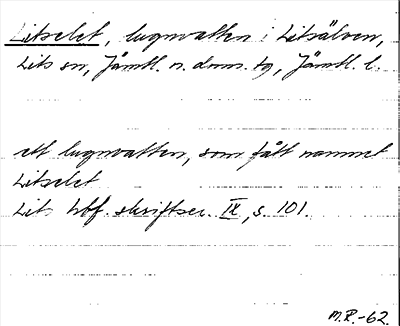 Litselet, lugnvatten i Litsälven,
Lits sn, Jämtl. n. doms. tg, Jämtl. l.
ett lugnvatten, som fått namnet
Litselet
Lits hbf. skriftser. IX, s. 101.
M.R.-62.